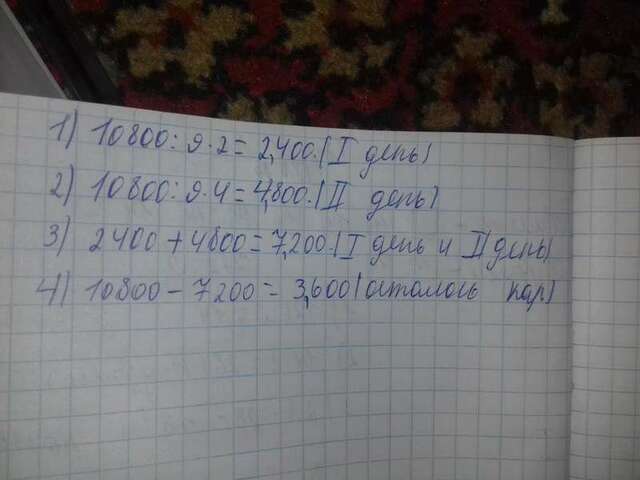 1) 10800 : 9 · 2 = 2,400. (I день)
2) 10800 : 9 · 4 = 4,800. (II день)
3) 2400 + 4800 = 7,200. (I день и II день)
4) 10800 - 7200 = 3,600 (осталось кар)